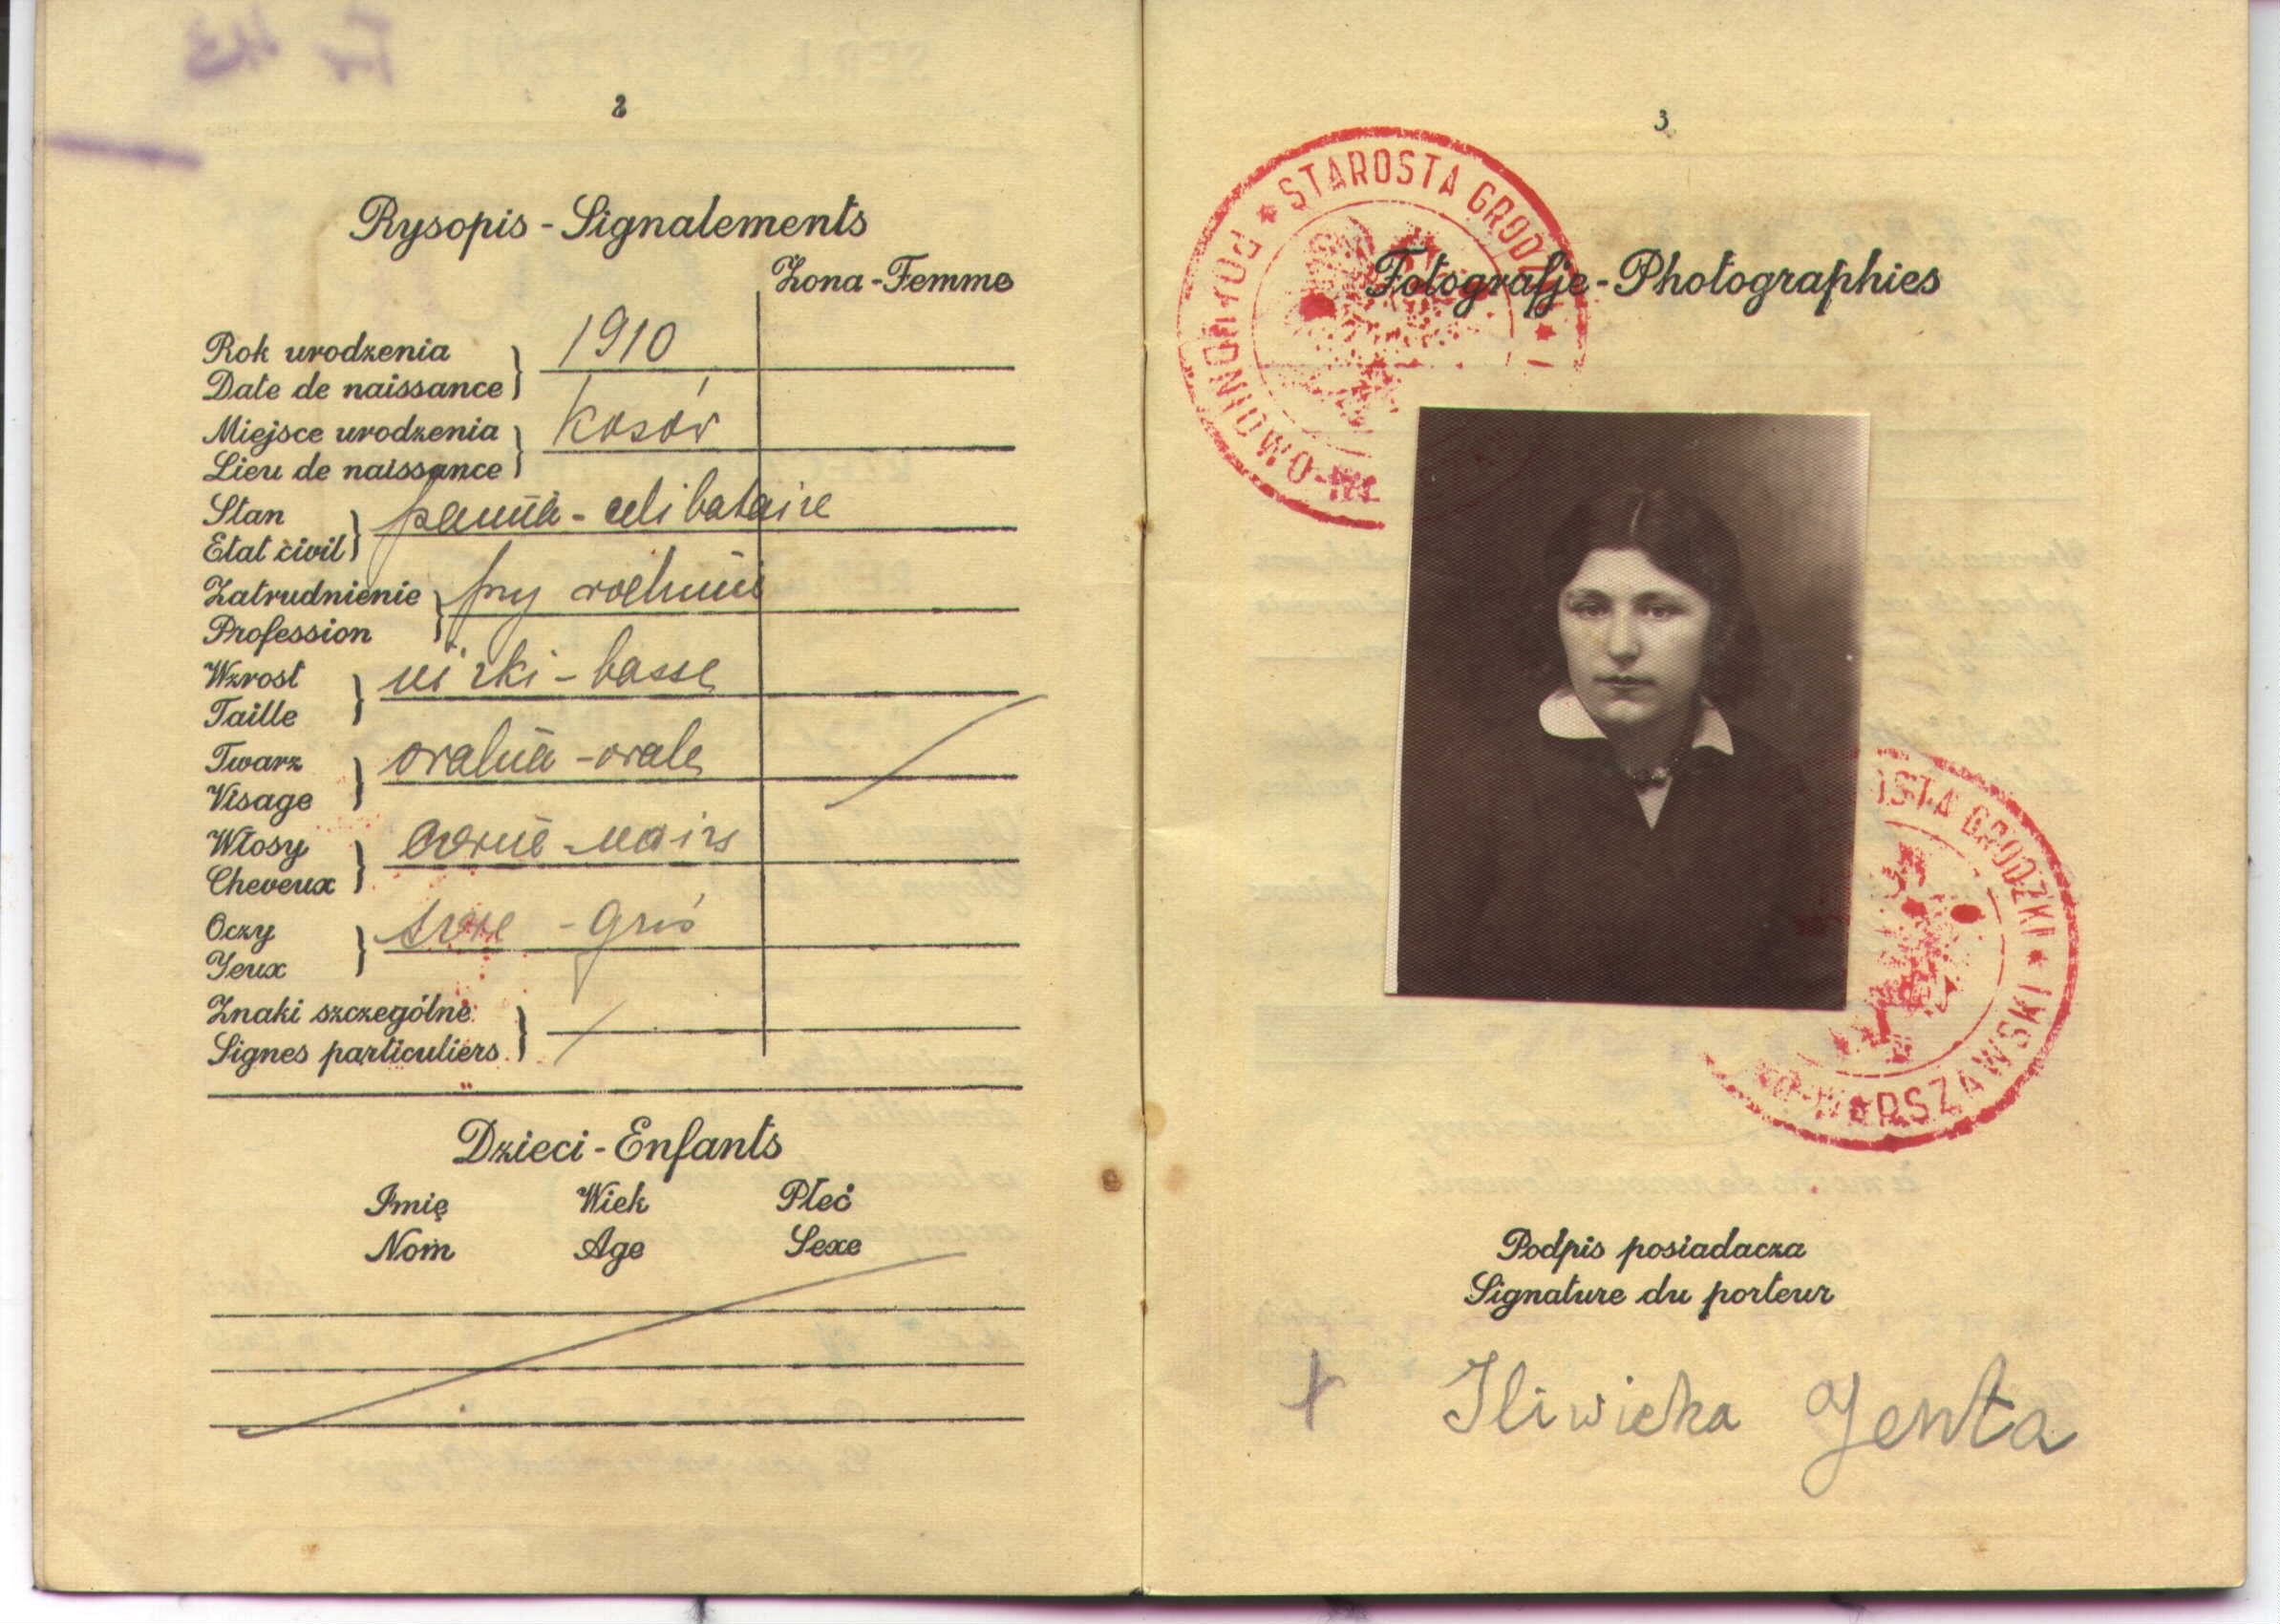 2
Rysopis - Signalements
Żona - Femme
Rok urodzenia
Date de naissance
1910
Miejsce urodzenia
Lieu de naissance
Kosów
Stan
Etat civil
panna - celibataire
Zatrudnienie
Profession
przy rodzinie
Wzrost
Taille
nizki - basse
Twarz
Visage
owalna - ovale
Włosy
Cheveux
czarne - noirs
Oczy
Yeux
szare - gris
Znaki szczególne
Signes particuliers
Dzieci - Enfants
Imię Wiek Płeć
Nom Age Sexe
3
STAROSTA GRODZKI
POŁUDNIOWO-
Fotografje - Photographies
STAROSTA GRODZKI
WARSZAWSKI
Podpis posiadacza
Signature du porteur
Iliwicka Jenta